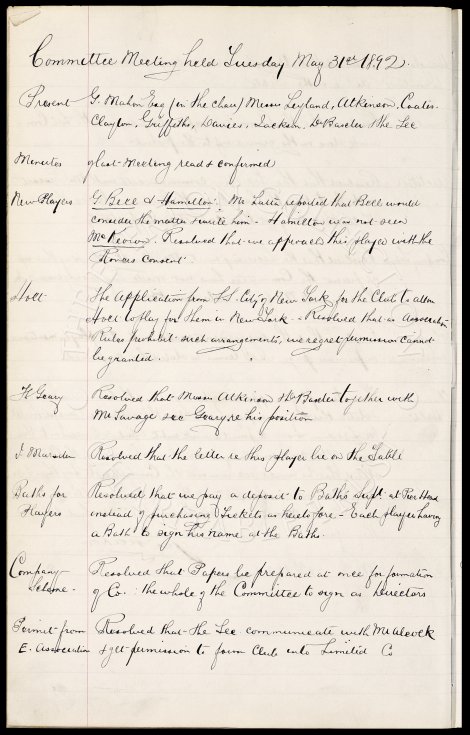 Committee Meeting held Tuesday May 31st 1892.
Present G. Mahon Esq (in the chair) Messrs Leyland, Atkinson, Coates.
Clayton, Griffiths, Davies, Jackson, Dr Baxter & the Sec
Minutes of last Meeting read & confirmed
New Players G Bell & Hamilton. Mr reported that Bell would
consider the matter & write him - Hamilton was not seen
McKeown. Resolved that we approach this player with the
Rovers consent.
Holt The Application from S.S. City of New York for the Club to allow
Holt to play for them in New York - Resolved that as Association
Rules prohibit such arrangements, we regret permission cannot
be granted.
H Geary Resolved that Messrs Atkinson & Dr Baxter together with
Mr Savage see Geary re his position
J Marsden Resolved that the letter re this player lie on the Table
Baths for Resolved that we pay a deposit to Baths Supt. at Pier Head
Players instead of purchasing Tickets as heretofore - Each player having
a Bath to sign his name at the Baths.
Company Resolved that Papers be prepared at once for formation
Scheme. of Co. the whole of the Committee to sign as Directors
Permit from Resolved that the Sec communicate with Mr Alcock
E. Association & get permission to form Club into Limited Co